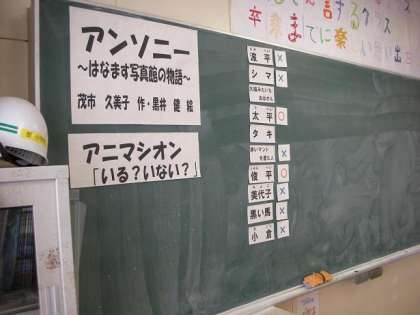 アンソニー
~はなます写真館の物語~
茂市 久美子 作・黒井 健 絵
アニマシオン
「いる？いない？」
波平 ×
シマ ×
太平 ○
タキ
赤いマント
×
俊平 ○
美代子 ×
黒い馬 ×
小倉 ×
するクラス
卒業までに楽しい思い出